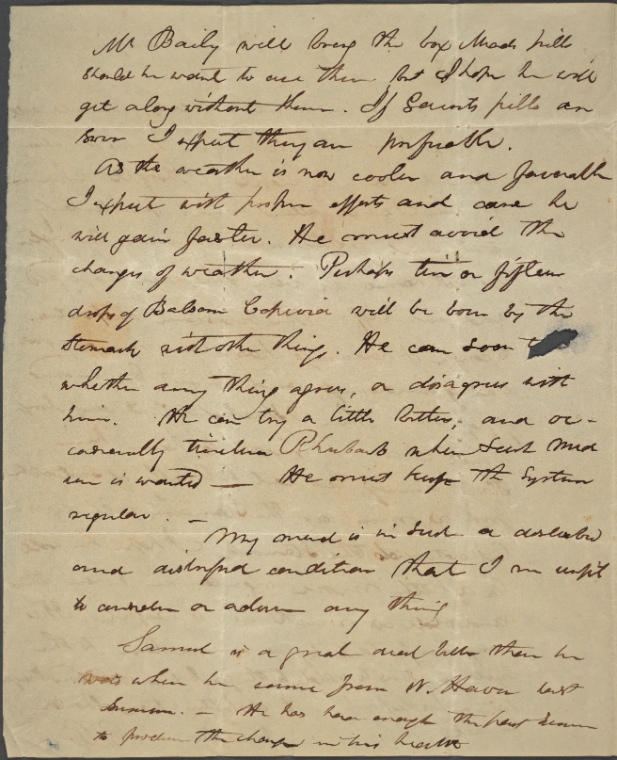 Mr Baily will bring the box Meads pills
should he want to use them but I hope he will
get along without them. If pills are
I expect they are preferable.
As the weather is now cooler and favorable
I expect with proper efforts and care he
will gain faster. He must avoid the
changes of weather. Perhaps ten or fifteen
drops of Balsam Copeivia will be born by the
stomach with other things. He can soon
whether any thing agrees, or disagrees with
him. He can try a little bitters, and oc-
casionally tincture Rhubarb when such med
icin is wanted — He must keep the System
regular. —
My mind is in such a disturbed
and distressed condition that I am unfit
to consider or advise any thing
Samuel is a great deal better than he
was when he came from N. Haven last
Summer. — He has been enough the past
to produce the change in his health